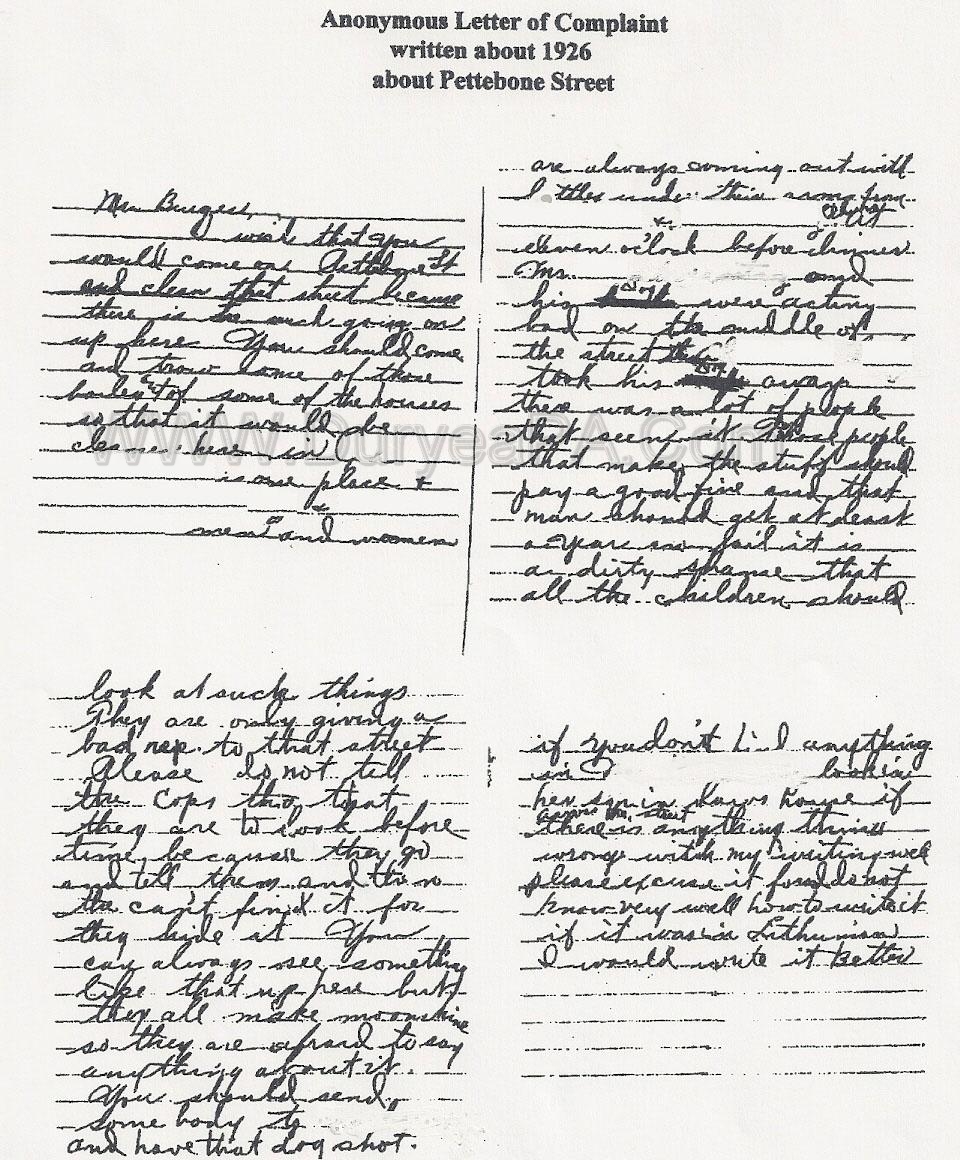 Anonymous Letter of Complaint
written about 1926
about Pettebone Street
Mr. Burgess,
I wish that you
would come on Pettebone St
and clean that street because
there is too much going on
up here You should come
and trow some of those
out of some of the houses
so that it would be
clean here in
is one place +
+
men and women
are always coming out with
bottles under their arms from
about
eleven o'clock before dinner
Mr. and
his dog were acting
bad on the middle of
the street
took his dog away
there was a lot of people
that seen it Those people
that make the stuff should
pay a good fine and that
man should get at least
a year in jail it is
a dirty shame that
all the children should
look at such things
They are only giving a
bad rep. to that street
Please do not tell
the cops tho, that
they are to look before
time, because they go
and tell them and then
the can't find it for
they hide it You
can always see something
like that up here but
they all make moonshine
so they are afraid to say
anything about it.
You should send
some body to
and have that dog shot.
if you don't find anything
in look in
her son in laws house if
across the street
there is anything things
wrong with my writing well
please excuse it for I do not
know very well how to write it
if it was in Lithunian
I would write it better
WWW.DuryeaPA.Com